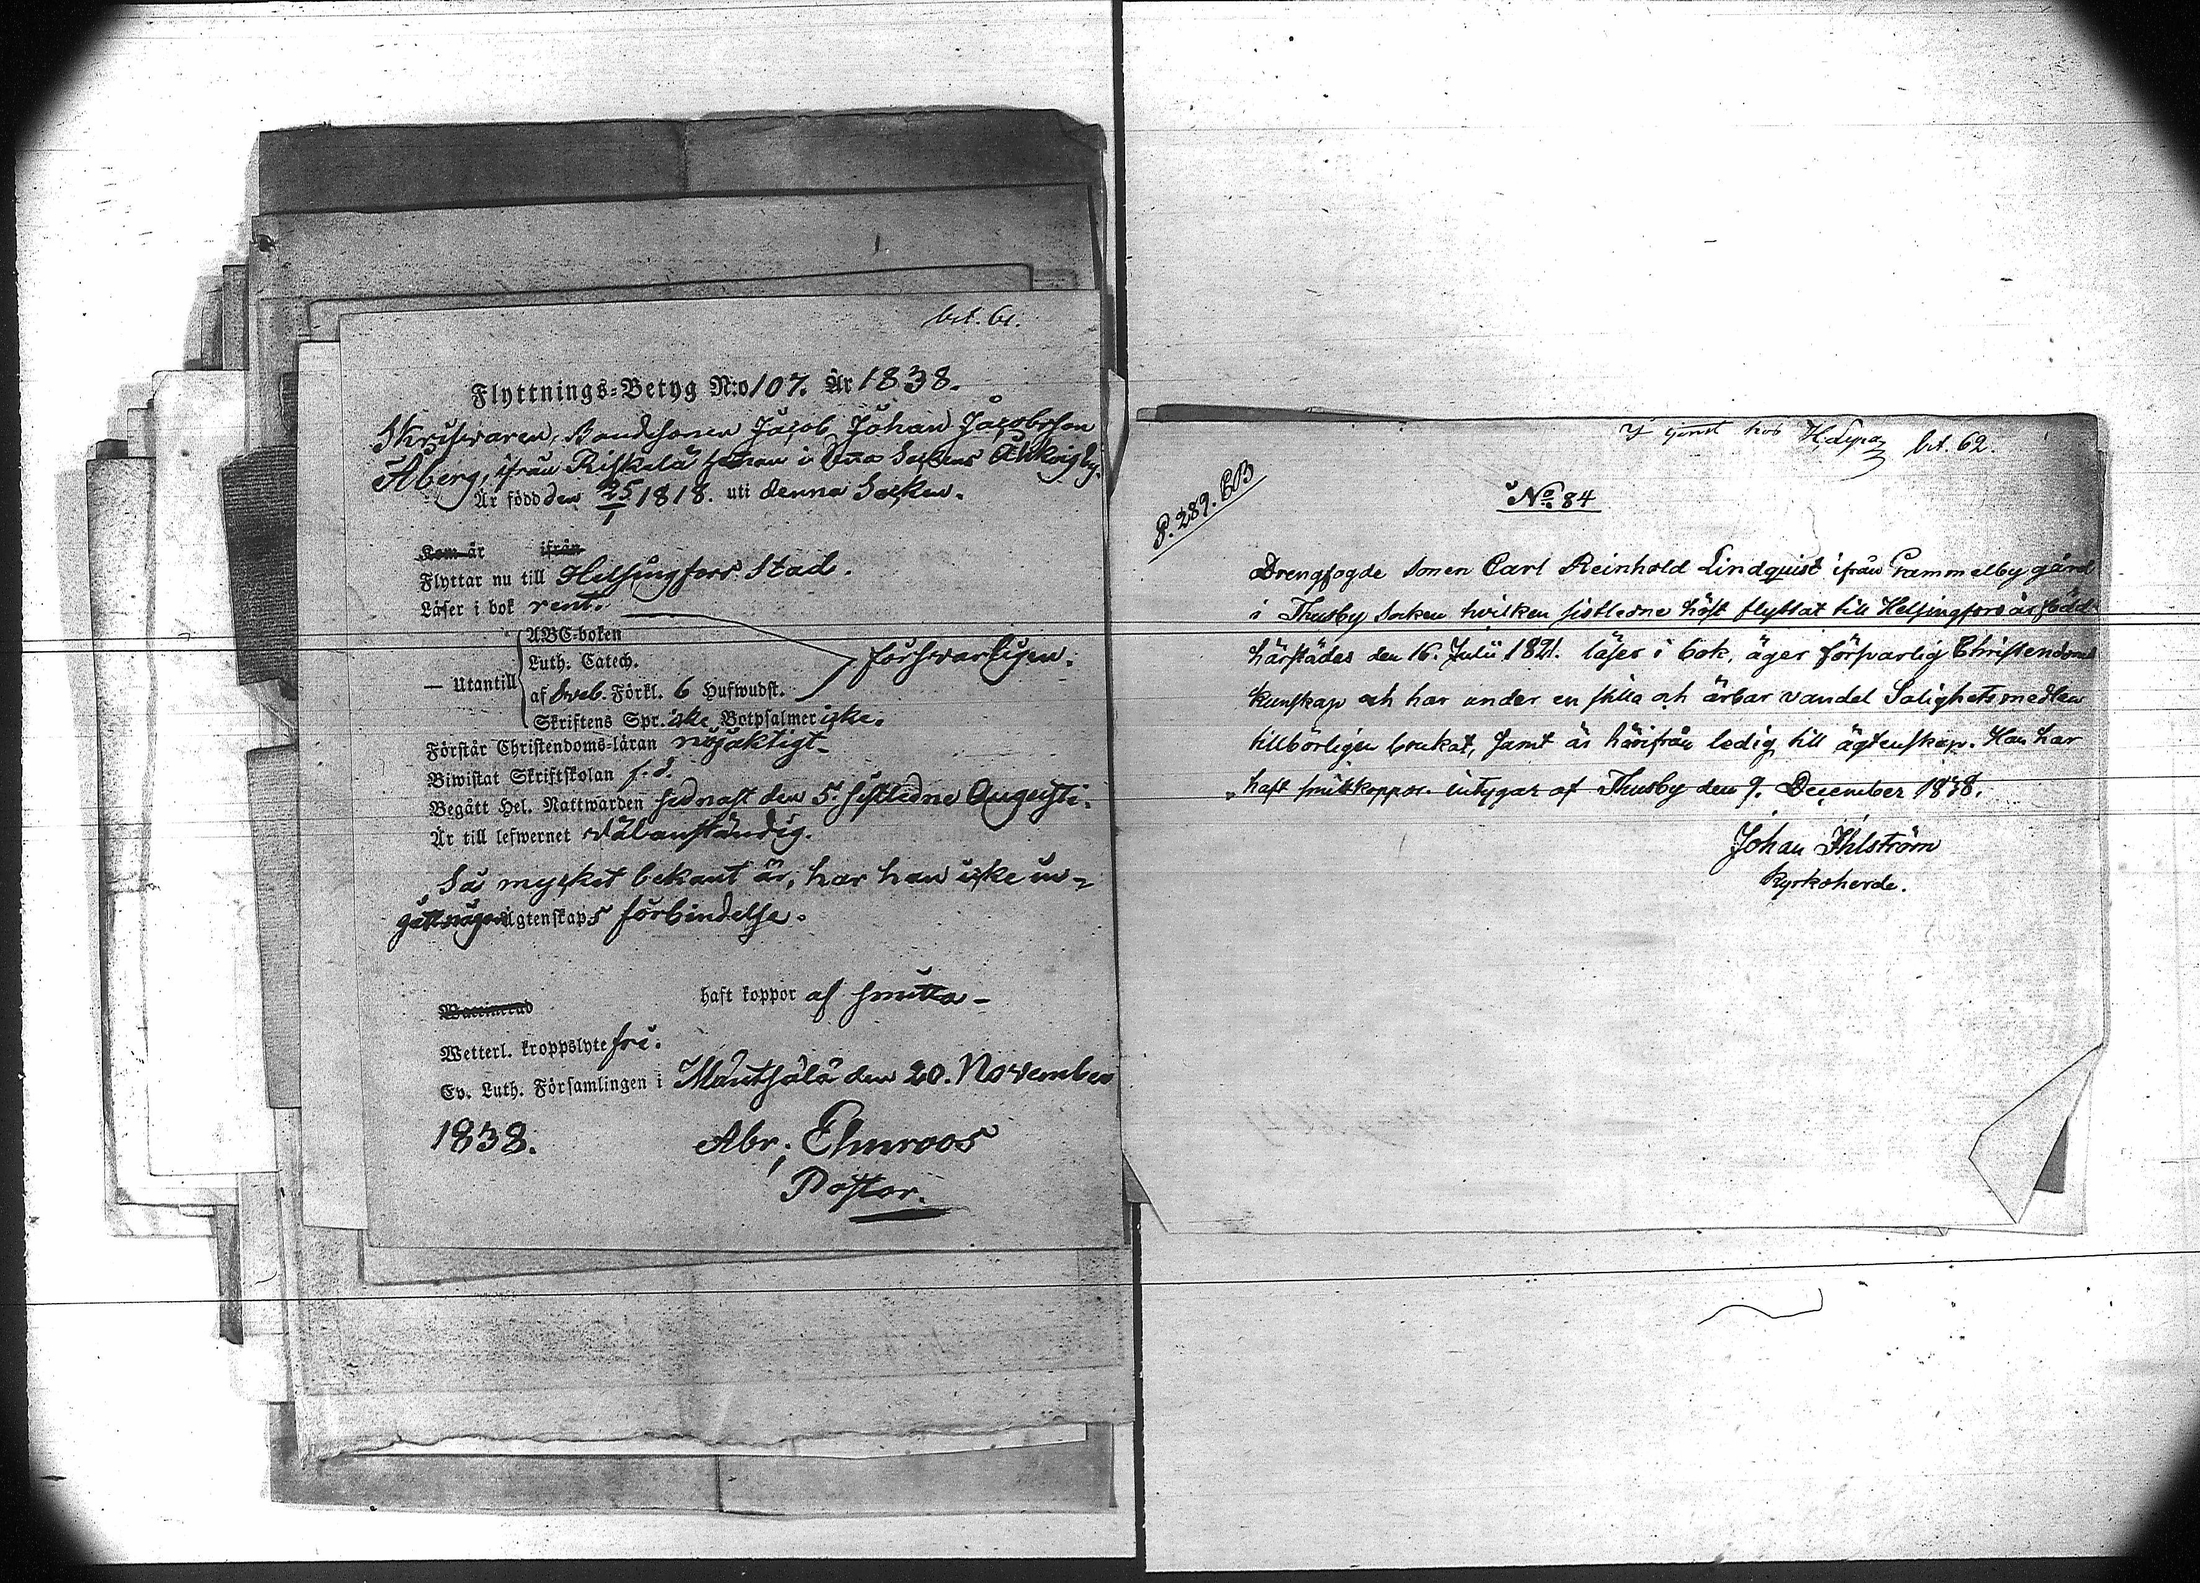 bil. 61.
Flyttnings-Betyg N:o 107. År 1838.
Skrifvaren, Bondesonen Jacob Johan Jacobsson
Åberg, ifrån Riskelä heman i Dena Sockens by.
Är född den 25/1 1818. uti denna Socken.
Kom år ifrån
Flyttar nu till Helsingfors Stad.
Läser i bok rent.
ABC-boken
Luth. Catech.
försvarligen.
— Utantill
af Sveb. Förkl. 6 Hufwudst.
Skriftens Spr. icke Botpsalmer icke.
Förstår Christendoms-läran nöjaktigt
Biwistat Skriftskolan f. d.
Begått Hel. Nattwarden sednast den 5. sistledne Augusti.
Är till lefwernet välanständig.
Så mycket bekant är, har han icke in-
gått någon Ägtenskaps förbindelse.
Waccinerad haft koppor af smitta
Wetterl. kroppslyte fri.
Ev. Luth. Församlingen i Mäntsälä den 20. November
1838. Abr. Elmroos
Pastor.
I tjenst hos bil. 62.
P. 289. CB
No 84
Drengfogde sonen Carl Reinhold Lindquist ifrån Gammelby gård
i Thusby Socken hvilken sistledne höst flyttat till Helsingfors är född
härstädes den 16. Julii 1821. läser i bok, äger försvarlig Christendoms
kunskap och har under en stilla och ärbar vandel Salighetsmedlen
tillbörligen brukat, samt är härifrån ledig till ägtenskap. Han har
haft smittkoppor. intygar af Thusby den 9. December 1838.
Johan Ihlström
Kyrkoherde.